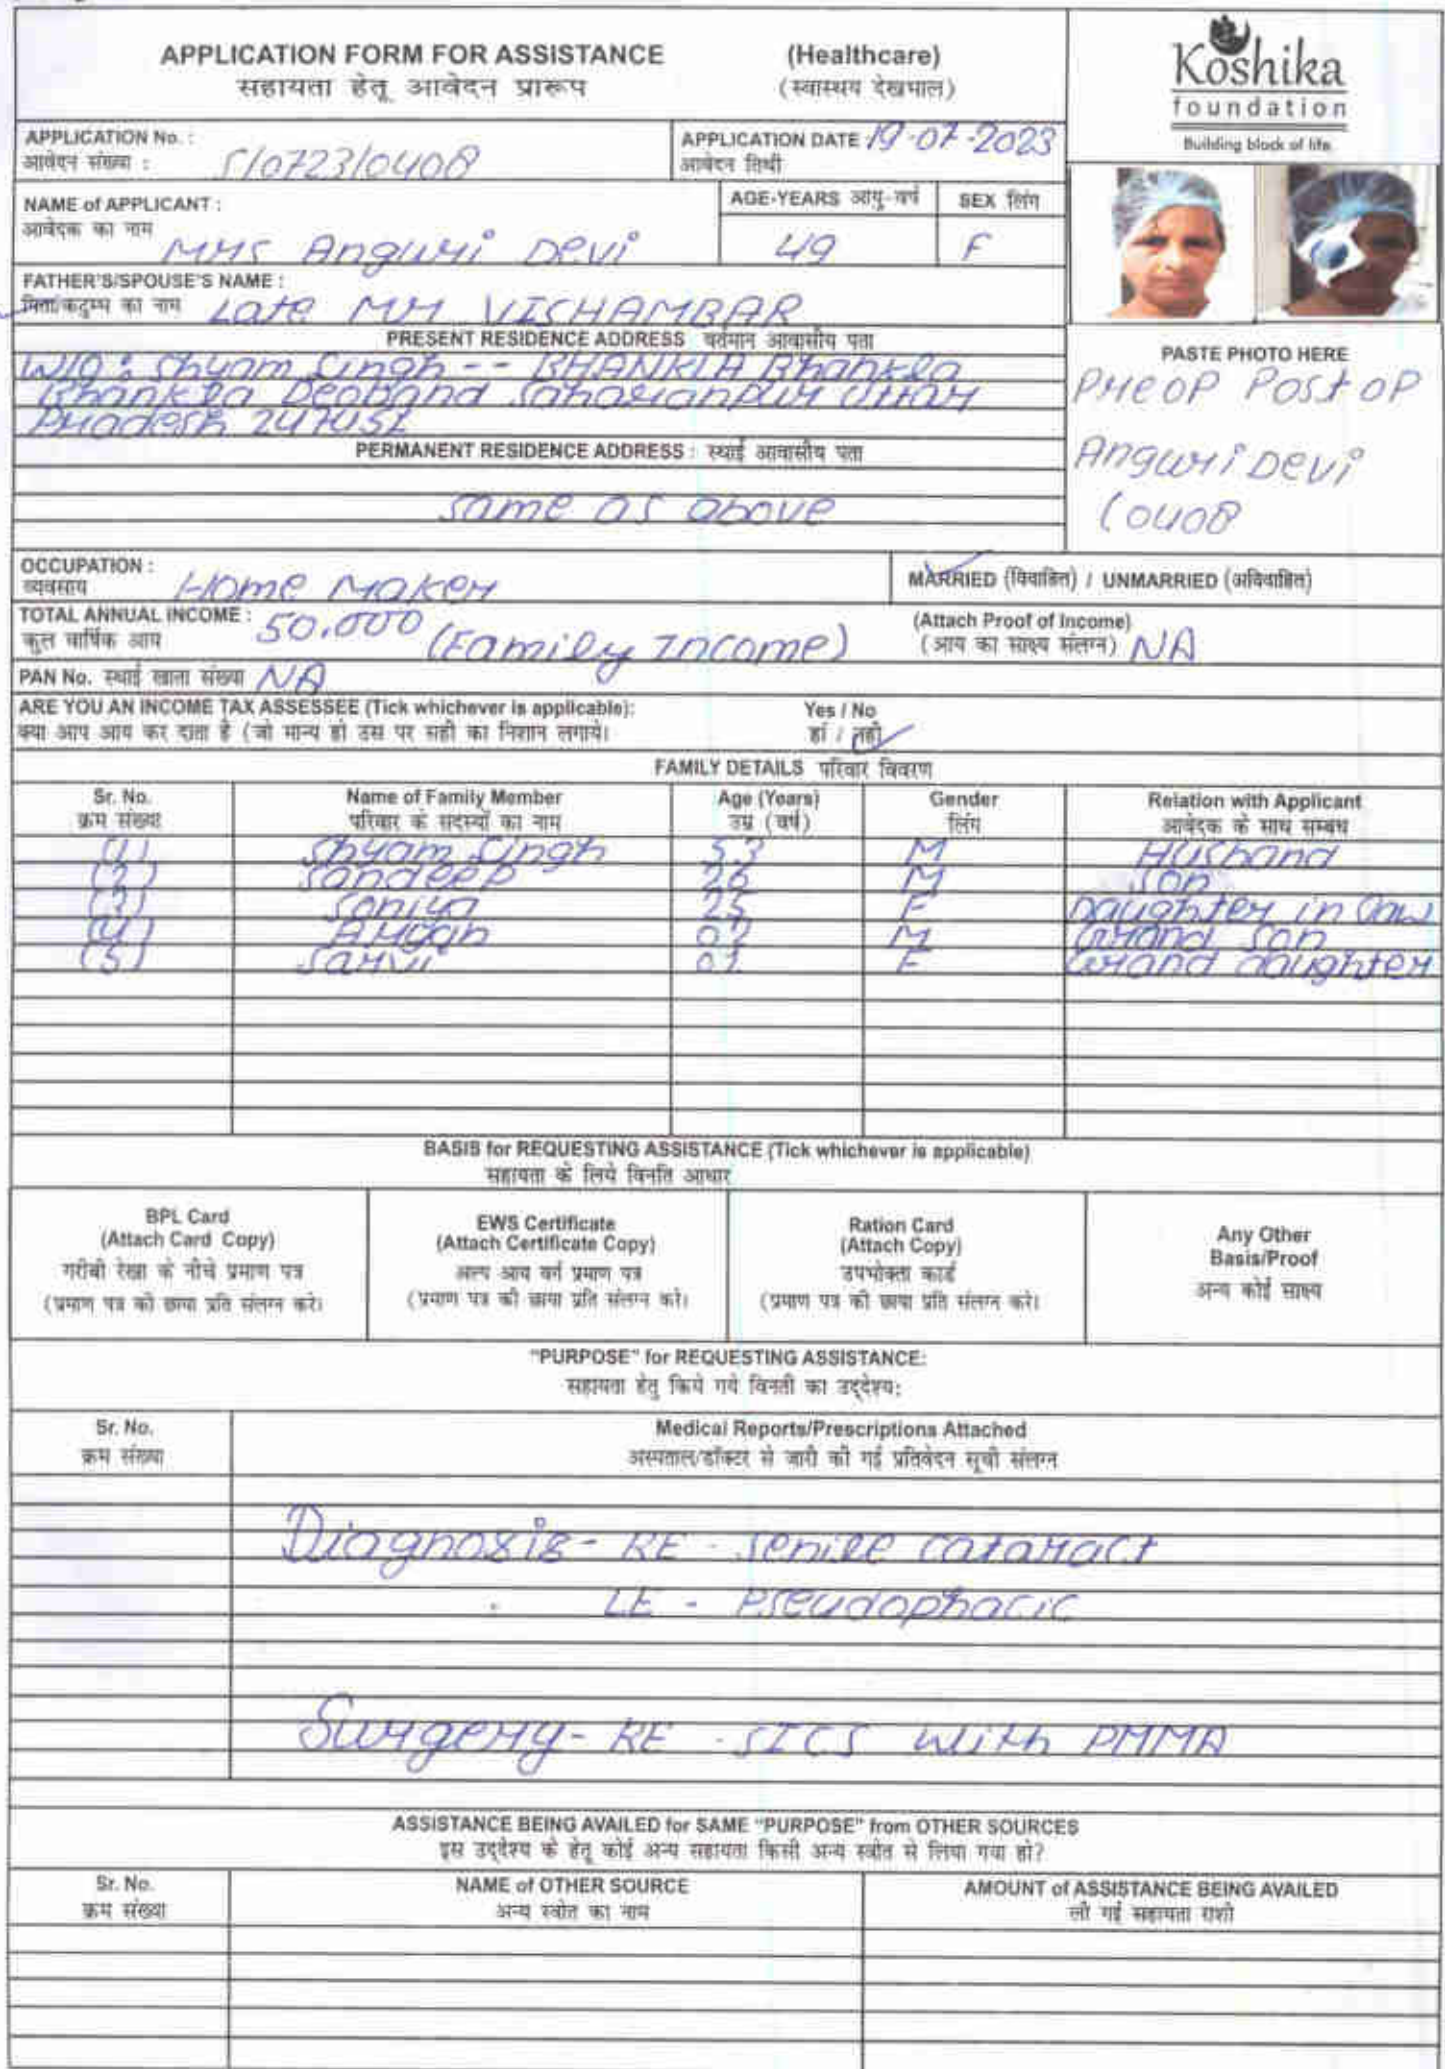 APPLICATION FORM FOR ASSISTANCE (Healthcare)
सहायता हेतू आवेदन प्रारूप (स्वास्थय देखभाल)
Koshika
foundation
Building block of life
APPLICATION No. :
आवेदन संख्या : S/0723/0408
APPLICATION DATE : 19-07-2023
आवेदन तिथी
NAME of APPLICANT :
आवेदक का नाम Mrs Anguri Devi
AGE-YEARS आयु-वर्ष 49
SEX लिंग F
FATHER'S/SPOUSE'S NAME :
पिता/कटुम्ब का नाम Late Mr VISHAMBAR
PRESENT RESIDENCE ADDRESS वर्तमान आवासीय पता
W/O: Shyam Singh -- BHANKLA Bhankla
Bhankla Deoband Saharanpur Uttar
Pradesh
PERMANENT RESIDENCE ADDRESS : स्थाई आवासीय पता
same as above
PASTE PHOTO HERE
Preop Post op
Anguri Devi
(0408
OCCUPATION :
व्यवसाय Home Maker
MARRIED (विवाहित) / UNMARRIED (अविवाहित)
TOTAL ANNUAL INCOME :
कुल वार्षिक आय 50,000 (Family Income)
(Attach Proof of Income)
(आय का साक्ष्य संलग्न) NA
PAN No. स्थाई खाता संख्या NA
ARE YOU AN INCOME TAX ASSESSEE (Tick whichever is applicable): Yes / No
क्या आप आय कर दाता है (जो मान्य हो उस पर सही का निशान लगाये। हां / नहीं
FAMILY DETAILS परिवार विवरण
Sr. No. Name of Family Member Age (Years) Gender Relation with Applicant
क्रम संख्या परिवार के सदस्यों का नाम उम्र (वर्ष) लिंग आवेदक के साथ सम्बंध
(1) Shyam Singh 53 M Husband
(2) Sandeep 26 M Son
(3) Soniya 25 F Daughter in law
(4) Aryan 02 M Grand Son
(5) Sarvi 01 F Grand daughter
BASIS for REQUESTING ASSISTANCE (Tick whichever is applicable)
सहायता के लिये विनति आधार
BPL Card
(Attach Card Copy)
गरीबी रेखा के नीचे प्रमाण पत्र
(प्रमाण पत्र की छाया प्रति संलग्न करे।
EWS Certificate
(Attach Certificate Copy)
अल्प आय वर्ग प्रमाण पत्र
(प्रमाण पत्र की छाया प्रति संलग्न करे।
Ration Card
(Attach Copy)
उपभोक्ता कार्ड
(प्रमाण पत्र की छाया प्रति संलग्न करे।
Any Other
Basis/Proof
अन्य कोई साक्ष्य
"PURPOSE" for REQUESTING ASSISTANCE:
सहायता हेतु किये गये विनती का उद्देश्य:
Sr. No. Medical Reports/Prescriptions Attached
क्रम संख्या अस्पताल/डॉक्टर से जारी की गई प्रतिवेदन सूची संलग्न
Diagnosis- RE - Senile cataract
LE - Pseudophacic
Surgery- RE - SICS with PMMA
ASSISTANCE BEING AVAILED for SAME "PURPOSE" from OTHER SOURCES
इस उद्देश्य के हेतू कोई अन्य सहायता किसी अन्य स्त्रोत से लिया गया हो?
Sr. No. NAME of OTHER SOURCE AMOUNT of ASSISTANCE BEING AVAILED
क्रम संख्या अन्य स्त्रोत का नाम ली गई सहायता राशी